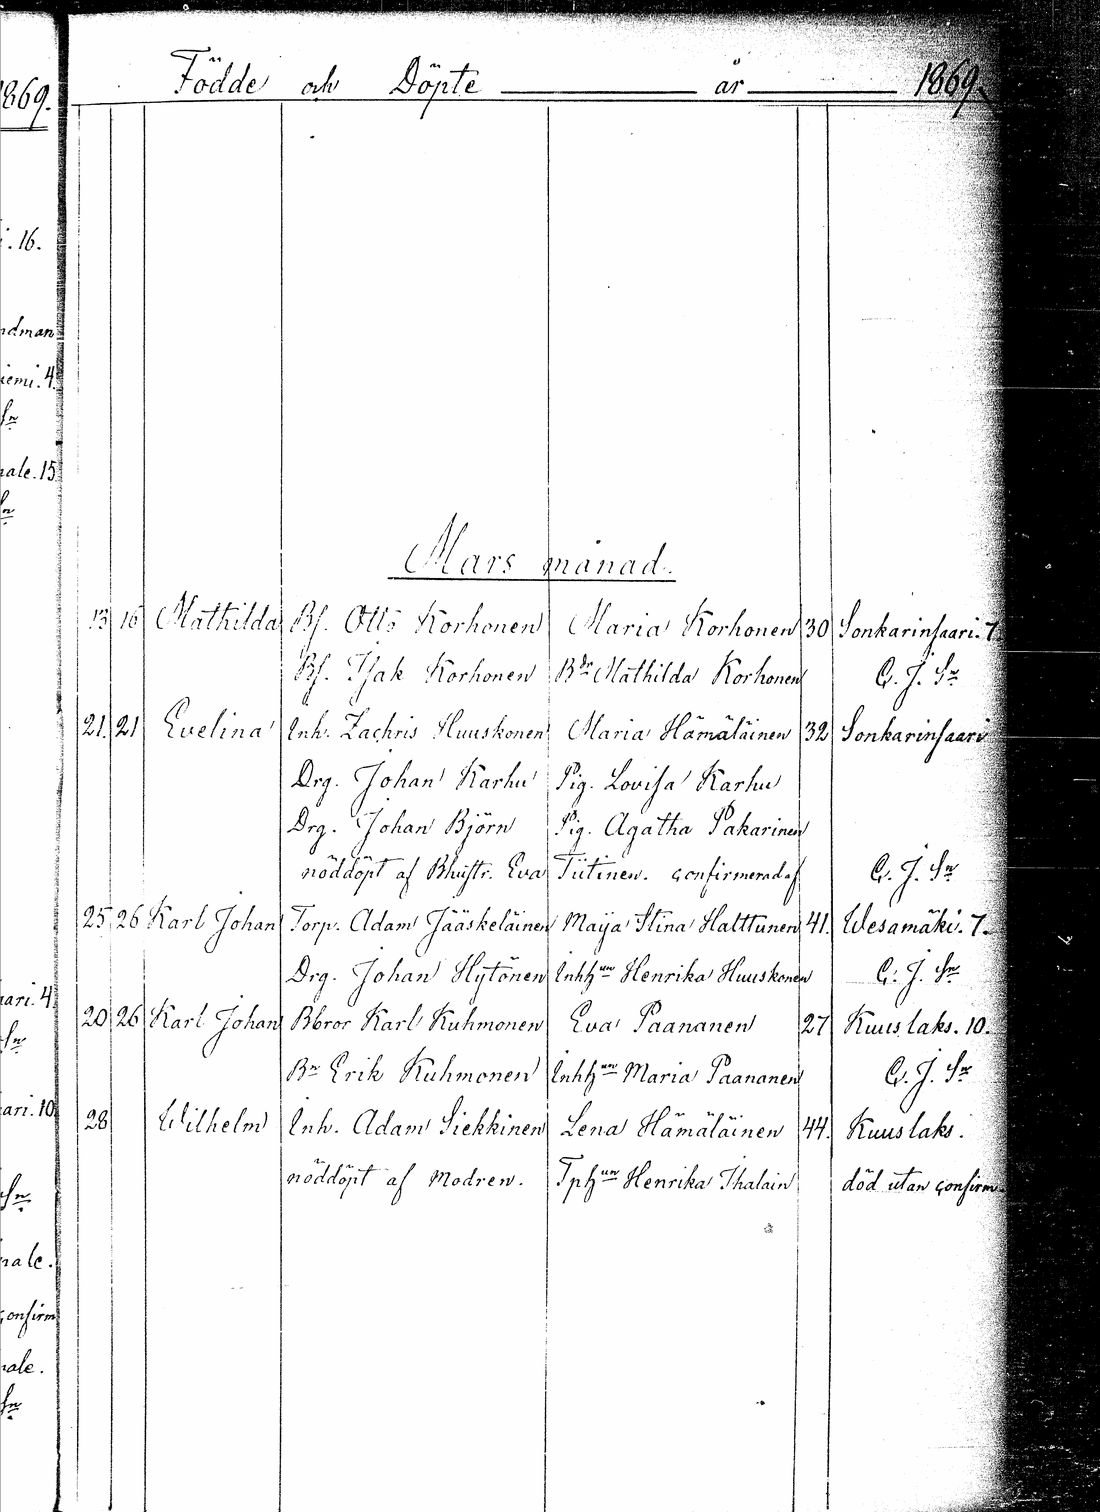 1869.
Födde och Döpte år 1869.
i. 16.
ndman
iemi. 4.
Sn
nale. 15
Sn
Mars månad.
13 16 Mathilda Bf. Otto Korhonen Maria Korhonen 30 Sonkarinsaari. 7.
Bf. Isak Korhonen Bdr Mathilda Korhonen C. J. Sn
21. 21 Evelina Inh. Zachris Huuskonen Maria Hämäläinen 32 Sonkarinsaari
Drg. Johan Karhu Pig. Lovisa Karhu
Drg. Johan Björn Pig. Agatha Pakarinen
nöddöpt af Bhustr. Eva Tiitinen. confirmerad af C. J. Sn
25 26 Karl Johan Torp. Adam Jääskeläinen Maija Stina Halttunen 41. Wesamäki. 7.
Drg. Johan Hytönen Inhh:un Henrika Huuskonen C. J. Sn
aari. 4
20 26 Karl Johan Bbror Karl Kuhmonen Eva Paananen 27 Kuuslaks. 10.
Sn
Bn Erik Kuhmonen Inhh:un Maria Paananen C. J. Sn
aari. 10
28 Wilhelm Inh. Adam Siekkinen Lena Hämäläinen 44. Kuuslaks.
nöddöpt af modren. Tph:un Henrika Ihalain död utan confirm.
Sn
nale.
confirm
nale.
Sn